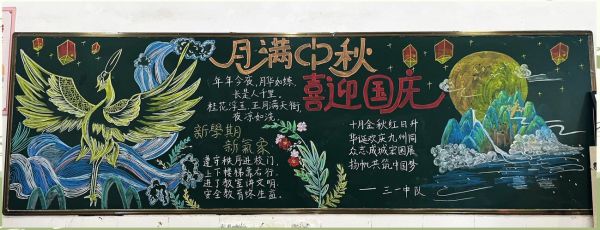 月满中秋
喜迎国庆
年年今夜,月华如练,
长是人千里。
桂花浮玉,正月满天街,
夜凉如洗。
新學期
新氣象
遵守秩序进校门,
上下楼梯靠右行。
进了教室讲文明,
安全教育终生益。
十月金秋红日升
华诞欢庆九州同
众志成城宏图展
扬帆共筑中国梦
——三一中队